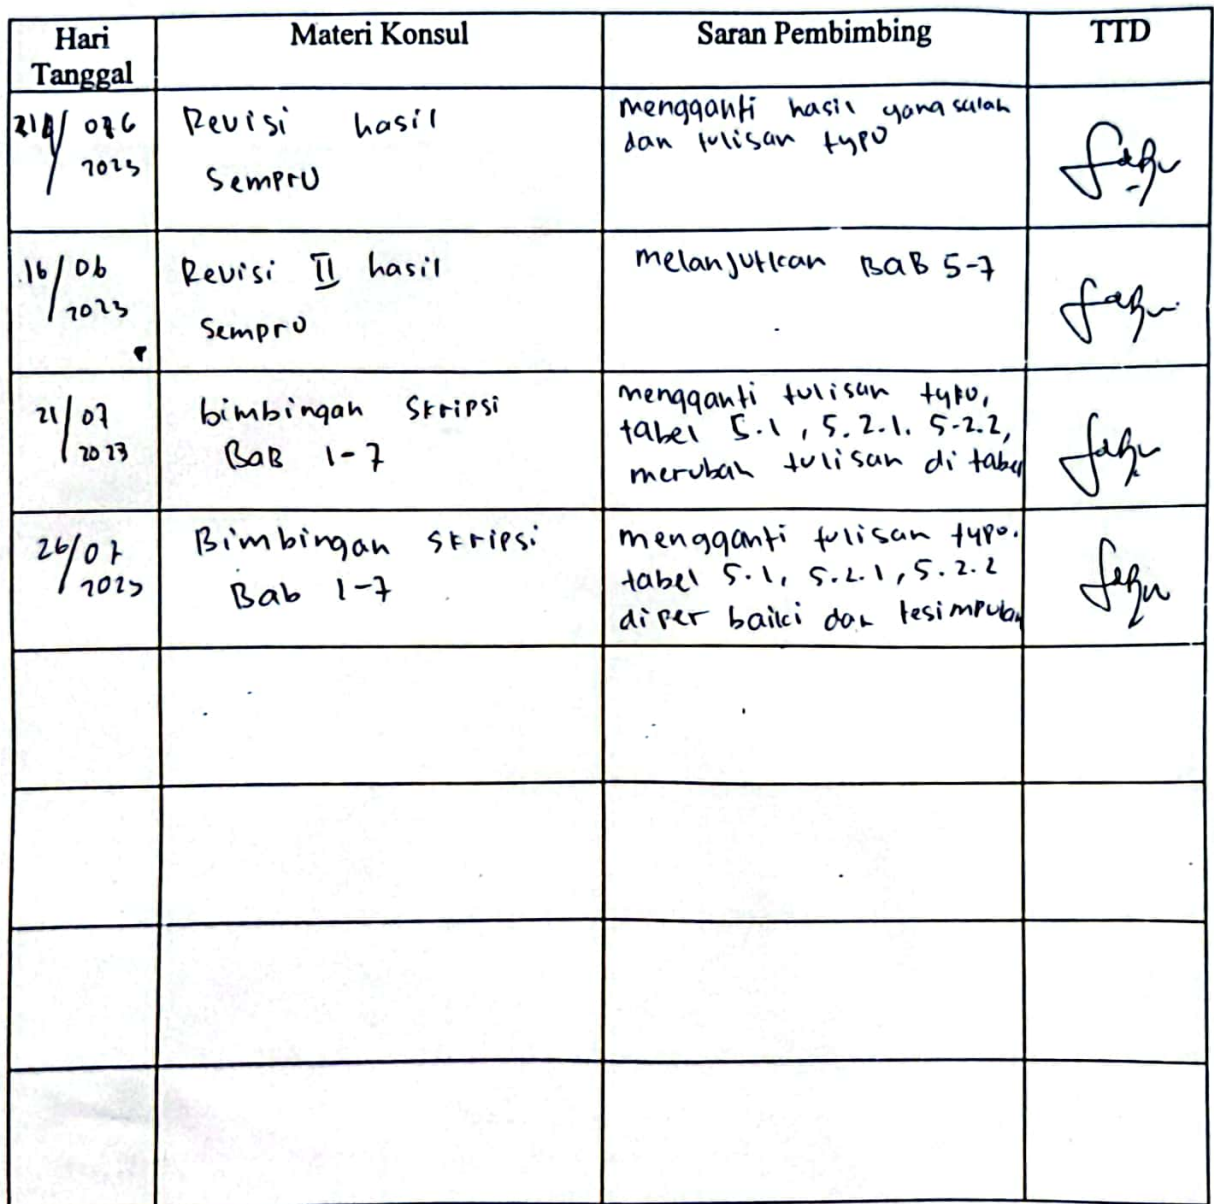 Hari Tanggal
Materi Konsul
Saran Pembimbing
TTD
2023
Revisi hasil
sempro
mengganti hasil yang salah
dan tulisan typo
16/06
2023
Revisi II hasil
sempro
melanjutkan BaB 5-7
21/07
2023
bimbingan skripsi
BaB 1-7
mengganti tulisan typo,
tabel 5.1, 5.2.1. 5.2.2,
merubah tulisan di tabel
26/07
2023
Bimbingan skripsi
Bab 1-7
mengganti tulisan typo.
tabel 5.1, 5.2.1, 5.2.2
diperbaiki dan kesimpulan